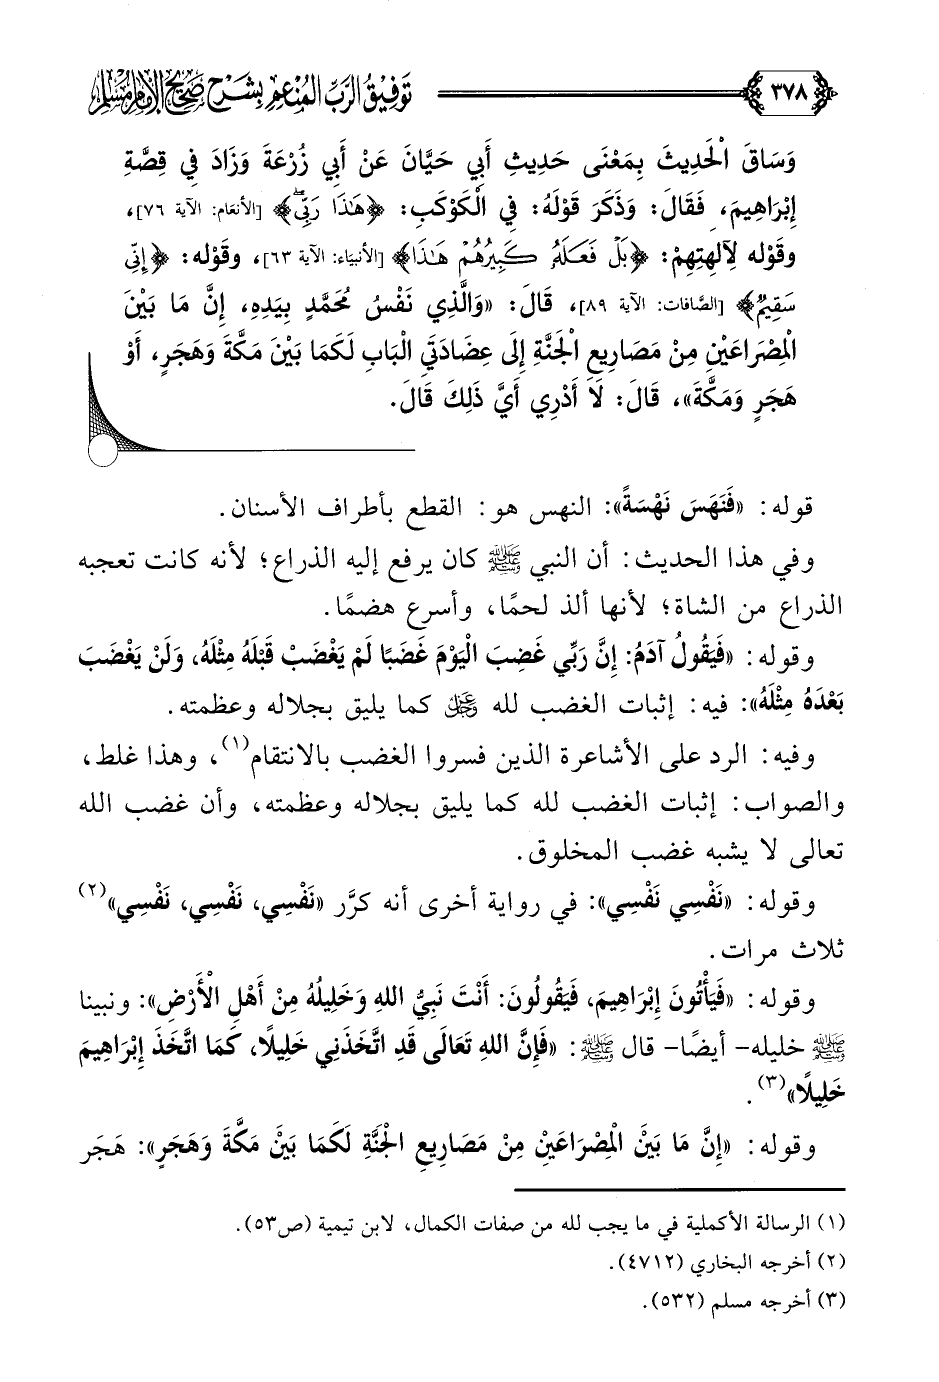 ٣٧٨
توفيق الرب المنعم بشرح صحيح الإمام مسلم
وَسَاقَ الْحَدِيثَ بِمَعْنَى حَدِيثِ أَبِي حَيَّانَ عَنْ أَبِي زُرْعَةَ وَزَادَ فِي قِصَّةِ
إِبْرَاهِيمَ، فَقَالَ: وَذَكَرَ قَوْلَهُ: فِي الْكَوْكَبِ: ﴿هَٰذَا رَبِّيۖ﴾ [الأنعَام: الآية ٧٦]،
وقَوْله لِآلِهتِهِمْ: ﴿بَلْ فَعَلَهُۥ كَبِيرُهُمْ هَٰذَا﴾ [الأنبيَاء: الآية ٦٣]، وقَوْله: ﴿إِنِّي
سَقِيمٌ﴾ [الصَّافات: الآية ٨٩]، قَالَ: «وَالَّذِي نَفْسُ مُحَمَّدٍ بِيَدِهِ، إِنَّ مَا بَيْنَ
الْمِصْرَاعَيْنِ مِنْ مَصَارِيعِ الْجَنَّةِ إِلَى عِضَادَتَيِ الْبَابِ لَكَمَا بَيْنَ مَكَّةَ وَهَجَرٍ، أَوْ
هَجَرٍ وَمَكَّةَ»، قَالَ: لَا أَدْرِي أَيَّ ذَلِكَ قَالَ.
قوله: «فَنَهَسَ نَهْسَةً»: النهس هو: القطع بأطراف الأسنان.
وفي هذا الحديث: أن النبي ﷺ كان يرفع إليه الذراع؛ لأنه كانت تعجبه
الذراع من الشاة؛ لأنها ألذ لحمًا، وأسرع هضمًا.
وقوله: «فَيَقُولُ آدَمُ: إِنَّ رَبِّي غَضِبَ الْيَوْمَ غَضَبًا لَمْ يَغْضَبْ قَبْلَهُ مِثْلَهُ، وَلَنْ يَغْضَبَ
بَعْدَهُ مِثْلَهُ»: فيه: إثبات الغضب لله عز وجل كما يليق بجلاله وعظمته.
وفيه: الرد على الأشاعرة الذين فسروا الغضب بالانتقام(١)، وهذا غلط،
والصواب: إثبات الغضب لله كما يليق بجلاله وعظمته، وأن غضب الله
تعالى لا يشبه غضب المخلوق.
وقوله: «نَفْسِي نَفْسِي»: في رواية أخرى أنه كرَّر «نَفْسِي، نَفْسِي، نَفْسِي»(٢)
ثلاث مرات.
وقوله: «فَيَأْتُونَ إِبْرَاهِيمَ، فَيَقُولُونَ: أَنْتَ نَبِيُّ اللهِ وَخَلِيلُهُ مِنْ أَهْلِ الْأَرْضِ»: ونبينا
ﷺ خليله- أيضًا- قال ﷺ: «فَإِنَّ اللهِ تَعَالَى قَدِ اتَّخَذَنِي خَلِيلًا، كَمَا اتَّخَذَ إِبْرَاهِيمَ
خَلِيلًا»(٣).
وقوله: «إِنَّ مَا بَيْنَ الْمِصْرَاعَيْنِ مِنْ مَصَارِيعِ الْجَنَّةِ لَكَمَا بَيْنَ مَكَّةَ وَهَجَرٍ»: هَجَر
(١) الرسالة الأكملية في ما يجب لله من صفات الكمال، لابن تيمية (ص٥٣).
(٢) أخرجه البخاري (٤٧١٢).
(٣) أخرجه مسلم (٥٣٢).